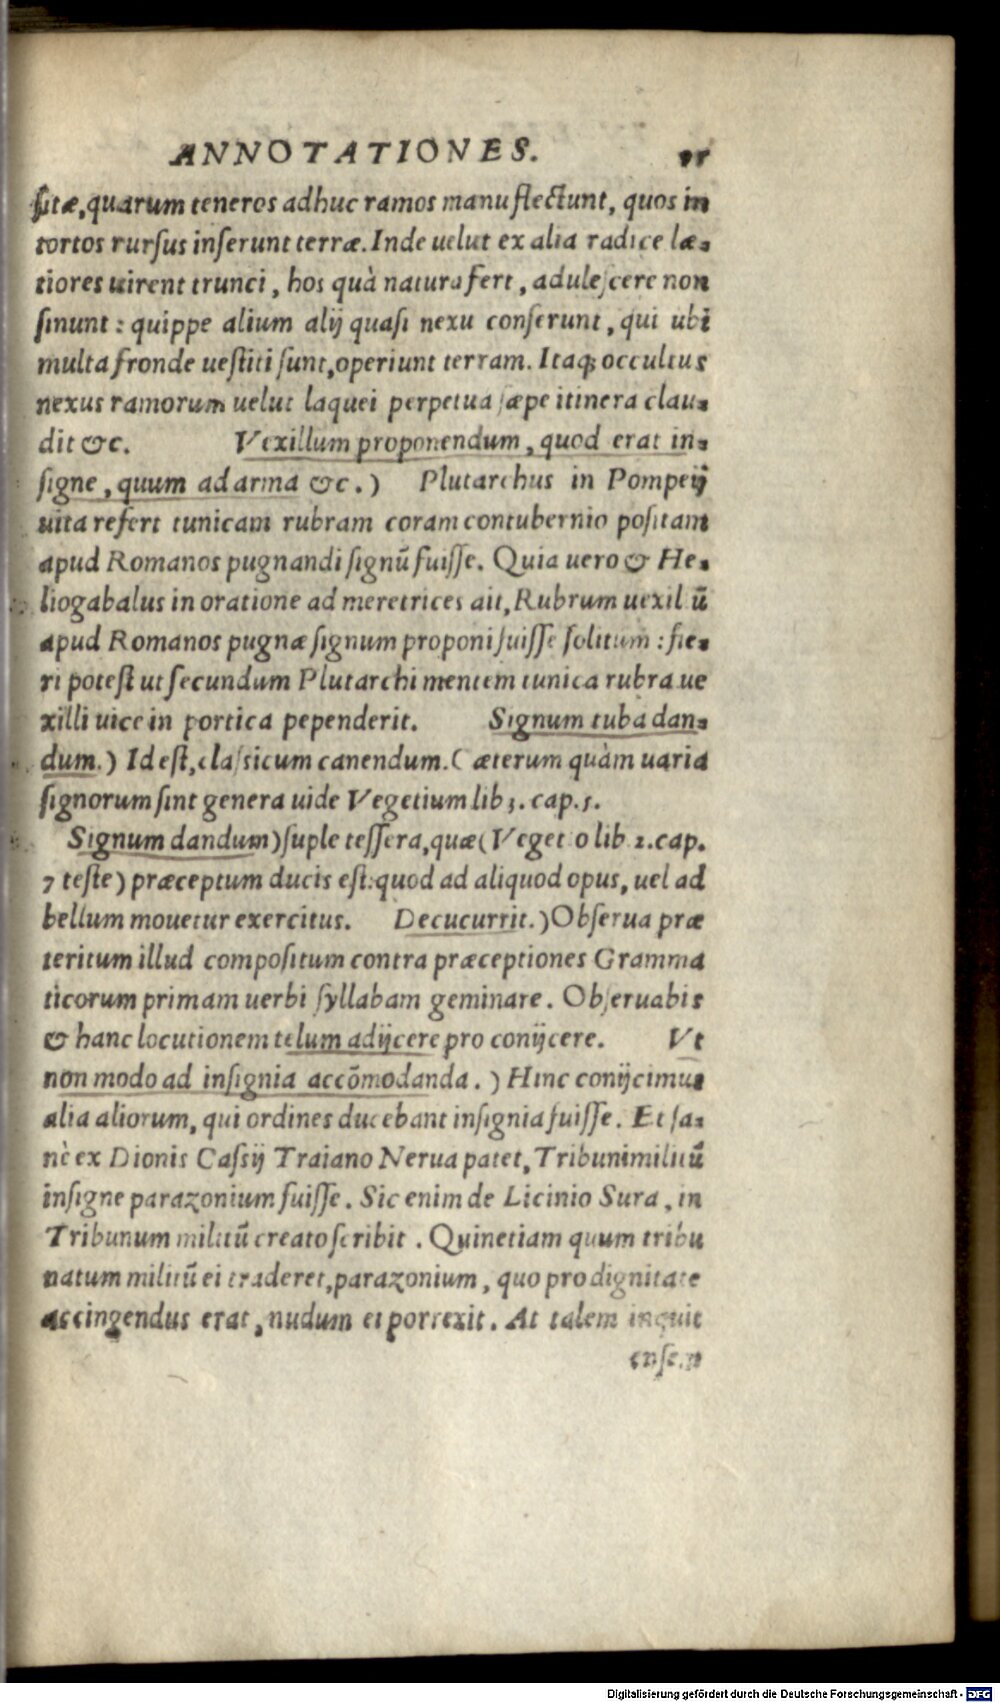 ANNOTATIONES.
sitæ, quarum teneros adhuc ramos manu flectunt, quos in
tortos rursus inserunt terræ. Inde uelut ex alia radice læ-
tiores uirent trunci, hos quà natura fert, adulescere non
sinunt: quippe alium alij quasi nexu conserunt, qui ubi
multa fronde uestiti sunt, operiunt terram. Itaq; occultus
nexus ramorum uelut laquei perpetua sæpe itinera clau-
dit &c. Vexillum proponendum, quod erat in-
signe, quum ad arma &c.) Plutarchus in Pompeij
uita refert tunicam rubram coram contubernio positam
apud Romanos pugnandi signū fuisse. Quia uero & He-
liogabalus in oratione ad meretrices ait, Rubrum uexil ū
apud Romanos pugnæ signum proponi fuisse solitum: fie-
ri potest ut secundum Plutarchi mentem tunica rubra ue
xilli uice in portica pependerit. Signum tuba dan-
dum.) Id est, classicum canendum. Cæterum quàm uaria
signorum sint genera uide Vegetium lib 3. cap. 5.
Signum dandum) suple tessera, quæ (Veget o lib 2. cap.
7 teste) præceptum ducis est: quod ad aliquod opus, uel ad
bellum mouetur exercitus. Decucurrit.) Obserua præ
teritum illud compositum contra præceptiones Gramma
ticorum primam uerbi syllabam geminare. Obseruabis
& hanc locutionem telum adijcere pro conijcere. Vt
non modo ad insignia accōmodanda.) Hinc conijcimus
alia aliorum, qui ordines ducebant insignia fuisse. Et sa-
nè ex Dionis Cassij Traiano Nerua patet, Tribuni militū
insigne parazonium fuisse. Sic enim de Licinio Sura, in
Tribunum militū creato scribit. Quinetiam quum tribu
natum militū ei traderet, parazonium, quo pro dignitate
accingendus erat, nudum ei porrexit. At talem inquit
ensem
Digitalisierung gefördert durch die Deutsche Forschungsgemeinschaft - DFG